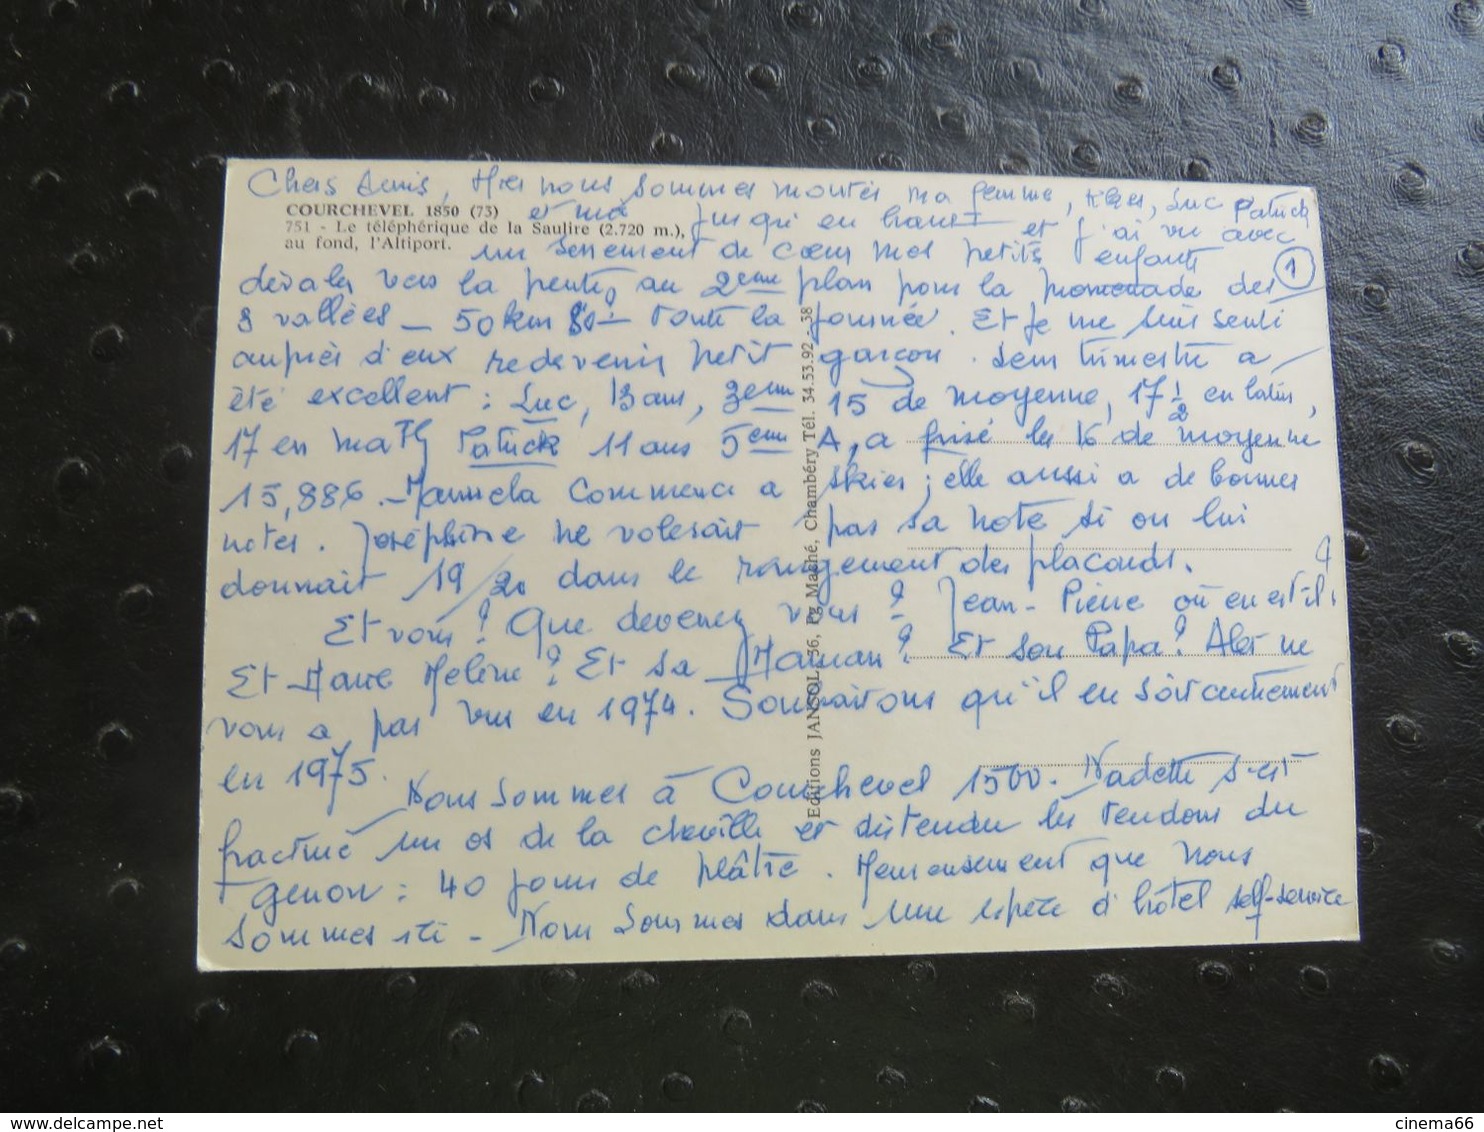 Chers Amis, Hier nous sommes montés ma femme, Luc Patrick
COURCHEVEL 1850 (73)
751 - Le téléphérique de la Saulire (2.720 m.),
au fond, l'Altiport.
et moi jusqu'en haut et j'ai vu avec
un serrement de cœur mes petits enfants
1
dévaler vers la pente au 2eme plan pour la promenade des
3 vallées - 50 km toute la journée. Et je me suis senti
auprès d'eux redevenir petit garçon. Leur trimestre a
été excellent : Luc, 13 ans, 3eme 15 de moyenne, 17 1/2 en latin,
17 en math Patrick 11 ans 5eme A, a frisé les 16 de moyenne
15,886. - Manuela commence a skier ; elle aussi a de bonnes
notes. Joséphine ne volerait pas sa note si on lui
donnait 19/20 dans le rangement des placards.
Et vous ? Que devenez vous ? Jean-Pierre où en est-il ?
Et Marie Hélène ? Et sa Maman ? Et son Papa ? Alès ne
vous a pas vus en 1974. Souhaitons qu'il en soit autrement
en 1975.
Nous sommes à Courchevel 1500. Nadette s'est
fracturé un os de la cheville et distendu les tendons du
genou : 40 jours de plâtre. Heureusement que nous
sommes ici - Nous sommes dans une espèce d'hôtel self-service
Editions JANSOL, 36, Fg Maché, Chambéry Tél. 34.53.92 - 38
cinema66